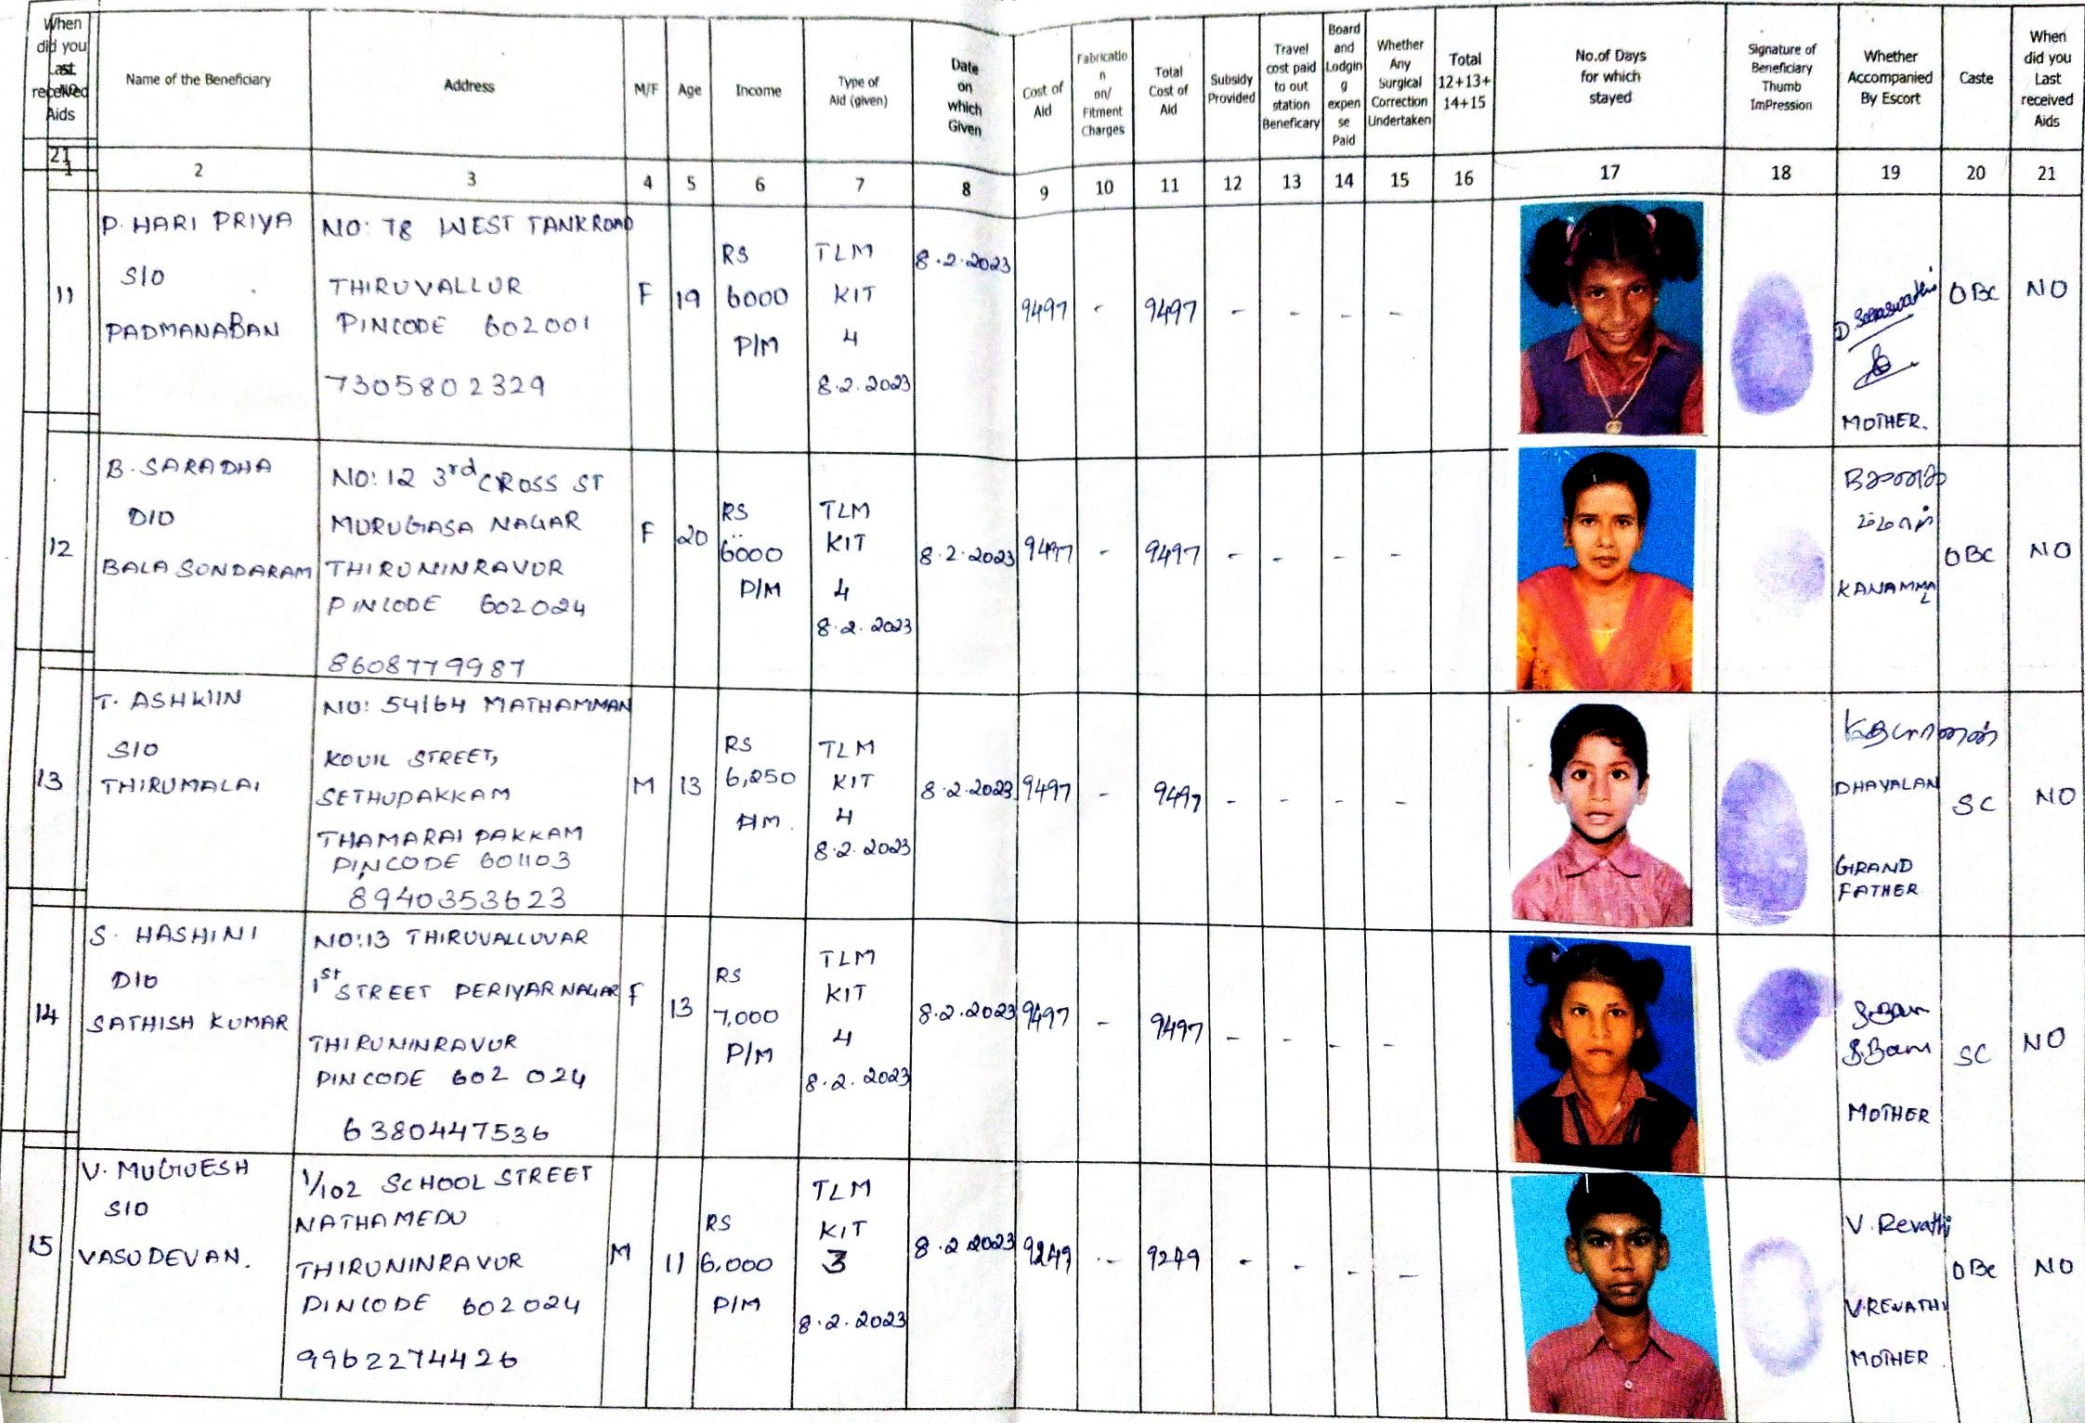 When
did you
Last
received
Aids
Name of the Beneficiary
Address
M/F
Age
Income
Type of
Aid (given)
Date
on
which
Given
Cost of
Aid
Fabricatio
n
on/
Fitment
Charges
Total
Cost of
Aid
Subsidy
Provided
Travel
cost paid
to out
station
Beneficary
Board
and
Lodgin
g
expen
se
Paid
Whether
Any
Surgical
Correction
Undertaken
Total
12+13+
14+15
No.of Days
for which
stayed
Signature of
Beneficiary
Thumb
ImPression
Whether
Accompanied
By Escort
Caste
When
did you
Last
received
Aids
21
1
2
3
4
5
6
7
8
9
10
11
12
13
14
15
16
17
18
19
20
21
11
P. HARI PRIYA
S/O
PADMANABAN
NO: 78 WEST TANK ROAD
THIRUVALLUR
PINCODE 602001
7305802329
F
19
RS
6000
P/M
TLM
KIT
4
8.2.2023
8.2.2023
9497
-
9497
-
-
-
-
D Saraswathi
MOTHER.
OBC
NO
12
B. SARADHA
D/O
BALA SUNDARAM
NO: 12 3rd CROSS ST
MURUGASA NAGAR
THIRUNINRAVUR
PINCODE 602024
8608779987
F
20
RS
6000
P/M
TLM
KIT
4
8.2.2023
8.2.2023
9497
-
9497
-
-
-
-
KANAMMA
L
OBC
NO
13
T. ASHWIN
S/O
THIRUMALAI
NO: 54/64 MATHAMMAN
KOVIL STREET,
SETHUPAKKAM
THAMARAI PAKKAM
PINCODE 601103
8940353623
M
13
RS
6,250
P/M.
TLM
KIT
4
8.2.2023
8.2.2023
9497
-
9497
-
-
-
-
DHAYALAN
GRAND
FATHER
SC
NO
14
S. HASHINI
D/O
SATHISH KUMAR
NO:13 THIRUVALLUVAR
1st STREET PERIYAR NAGAR
THIRUNINRAVUR
PINCODE 602 024
6380447536
F
13
RS
7,000
P/M
TLM
KIT
4
8.2.2023
8.2.2023
9497
-
9497
-
-
-
-
MOTHER
SC
NO
15
V. MUGUESH
S/O
VASUDEVAN.
1/102 SCHOOL STREET
NATHAMEDU
THIRUNINRAVUR
PINCODE 602024
9962274426
M
11
RS
6,000
P/M
TLM
KIT
3
8.2.2023
8.2.2023
9249
-
9249
-
-
-
-
V. Revathi
V.REVATHI
MOTHER
OBC
NO